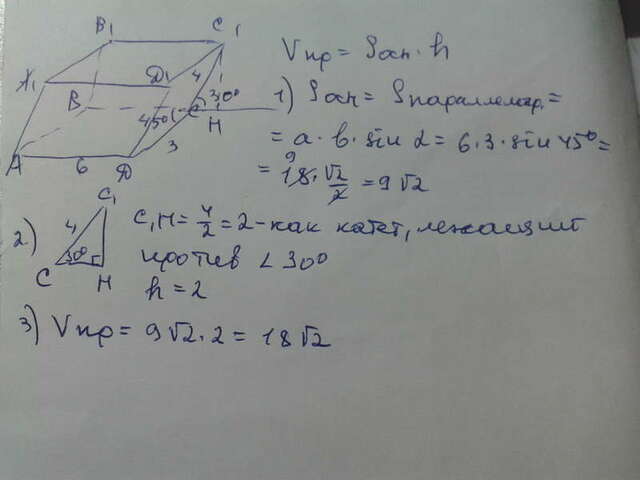 B₁ C₁
A₁ D₁ 4 30°
B C H
45°
A 6 D 3
Vпр = Sосн · h
1) Sосн = Sпараллелогр. =
= a · b · sin α = 6 · 3 · sin 45° =
= 18 · √2/2 = 9√2
9
2) C₁ 4 30° C H
C₁H = 4/2 = 2 - как катет, лежащий
против ∠30°
h = 2
3) Vпр = 9√2 · 2 = 18√2